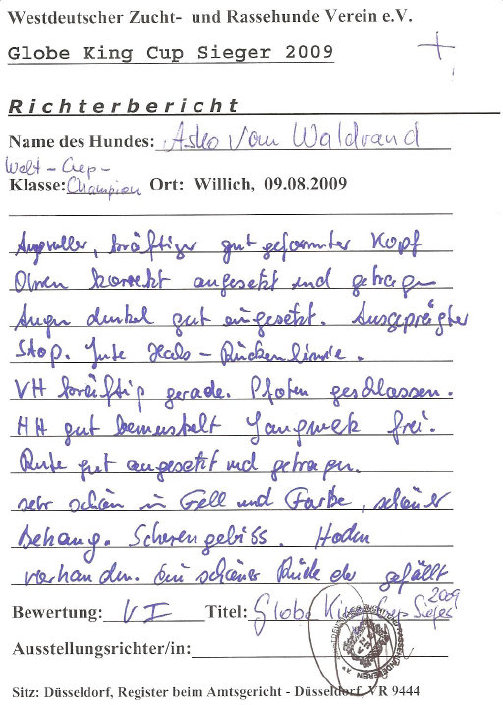 Westdeutscher Zucht- und Rassehunde Verein e.V.
Globe King Cup Sieger 2009
Richterbericht
Name des Hundes: Asko vom Waldrand
Welt-Cup-
Klasse: Champion Ort: Willich, 09.08.2009
kräftiger gut geformter Kopf
Ohren korrekt angesetzt und getragen
Augen dunkel gut eingesetzt. Ausgeprägter
Stop. Gute Hals-Rückenlinie.
VH kräftig gerade. Pfoten geschlossen.
HH gut bemuskelt Gangwerk frei.
Rute gut angesetzt und getragen.
sehr schön in Fell und Farbe, schöner
Behang. Scherengebiss. Hoden
vorhanden. Ein schöner Rüde der gefällt
Bewertung: V1 Titel: Globe King Cup Sieger 2009
Ausstellungsrichter/in:
Sitz: Düsseldorf, Register beim Amtsgericht - Düsseldorf, VR 9444